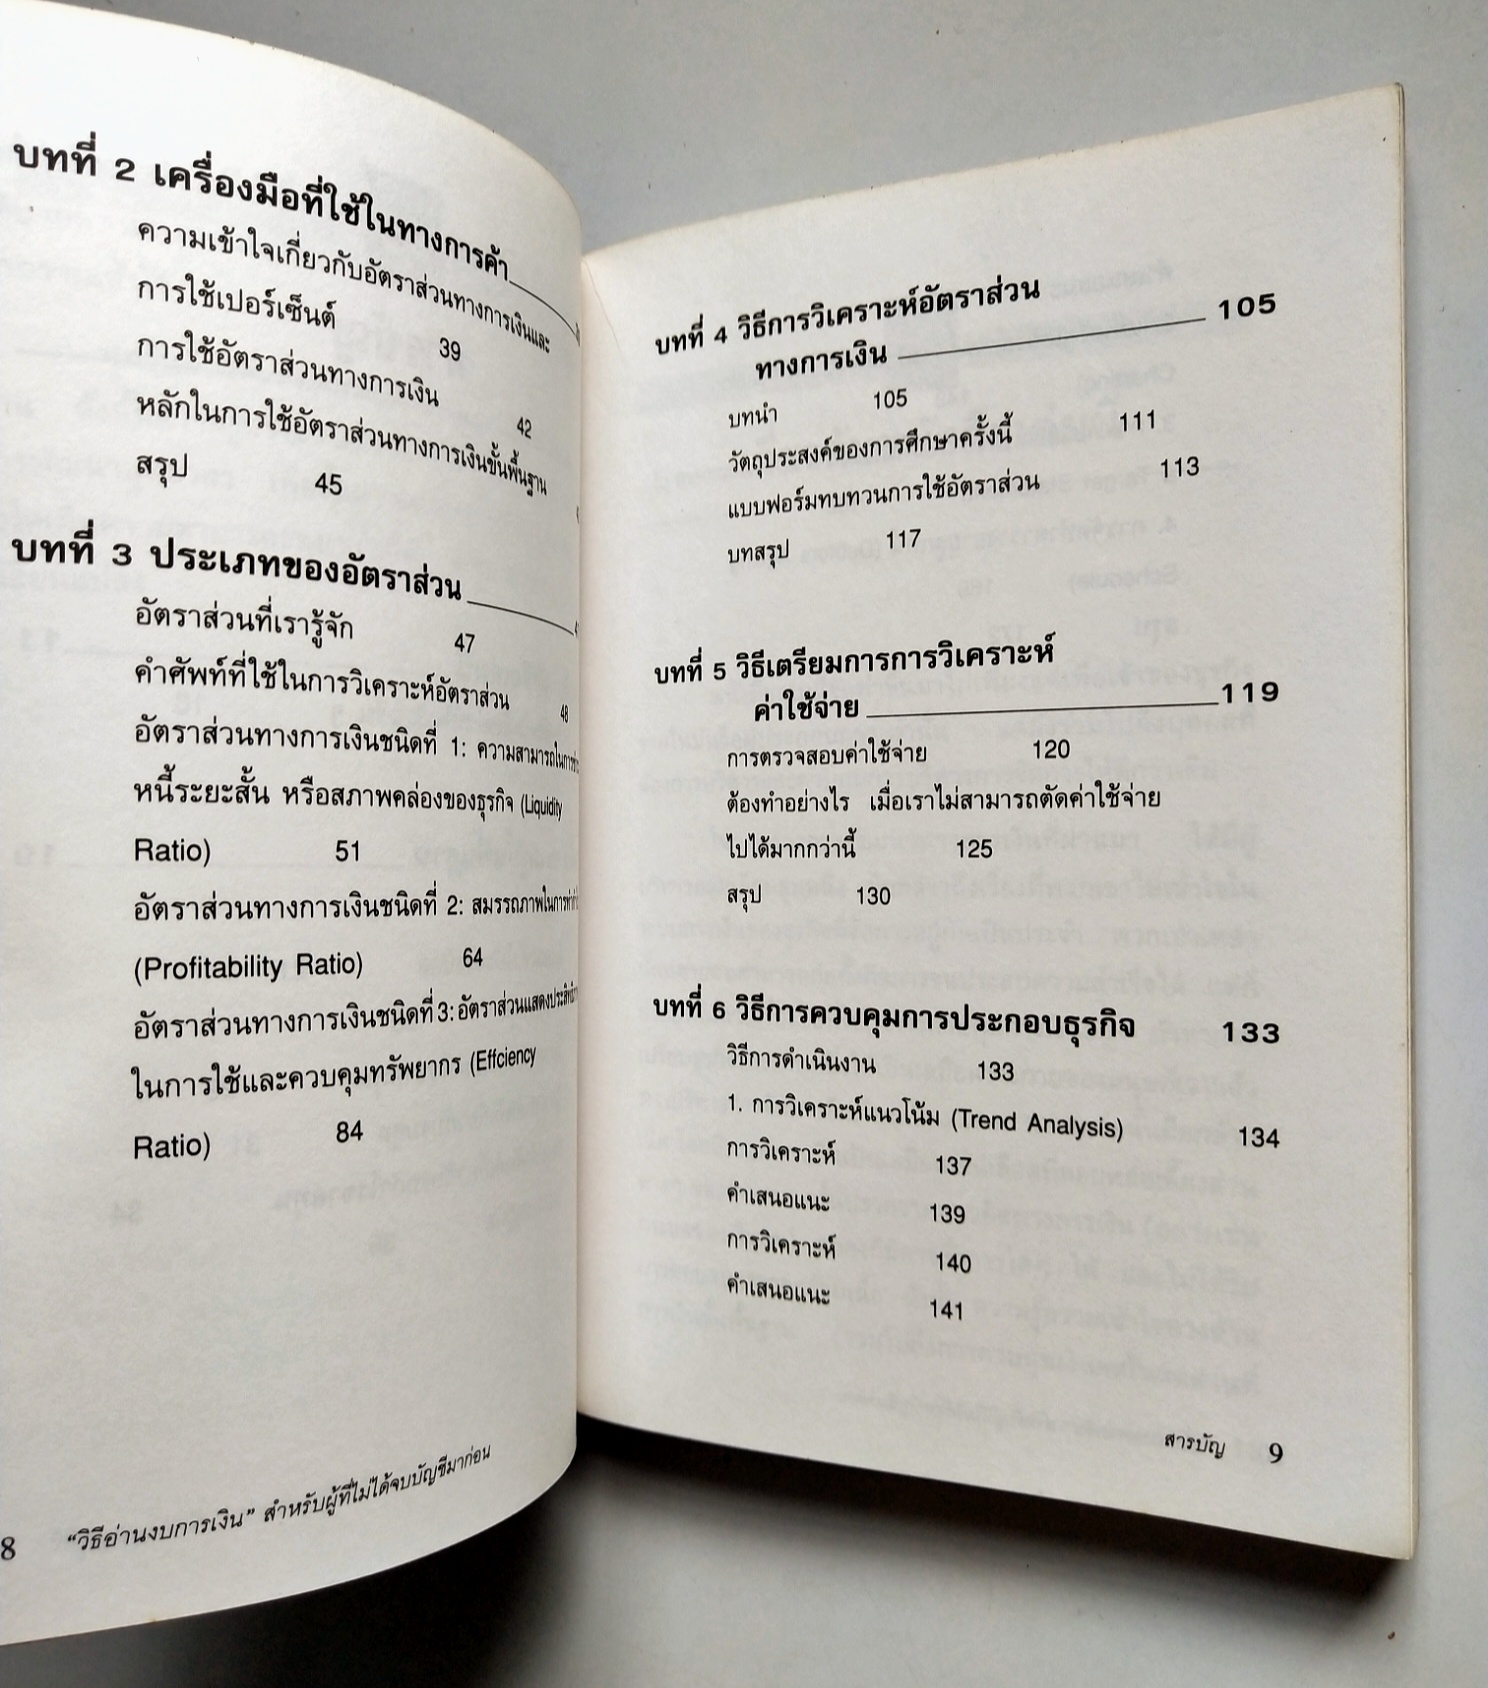 บทที่ 2 เครื่องมือที่ใช้ในทางการค้า
ความเข้าใจเกี่ยวกับอัตราส่วนทางการเงินและ
การใช้เปอร์เซ็นต์ 39
การใช้อัตราส่วนทางการเงิน 42
หลักในการใช้อัตราส่วนทางการเงินขั้นพื้นฐาน
สรุป 45
บทที่ 3 ประเภทของอัตราส่วน
อัตราส่วนที่เรารู้จัก 47
คำศัพท์ที่ใช้ในการวิเคราะห์อัตราส่วน 48
อัตราส่วนทางการเงินชนิดที่ 1: ความสามารถในการ
หนี้ระยะสั้น หรือสภาพคล่องของธุรกิจ (Liquidity
Ratio) 51
อัตราส่วนทางการเงินชนิดที่ 2: สมรรถภาพในการ
(Profitability Ratio) 64
อัตราส่วนทางการเงินชนิดที่ 3: อัตราส่วนแสดง
ในการใช้และควบคุมทรัพยากร (Effciency
Ratio) 84
8 “วิธีอ่านงบการเงิน” สำหรับผู้ที่ไม่ได้จบบัญชีมาก่อน
บทที่ 4 วิธีการวิเคราะห์อัตราส่วน
ทางการเงิน 105
บทนำ 105
วัตถุประสงค์ของการศึกษาครั้งนี้ 111
แบบฟอร์มทบทวนการใช้อัตราส่วน 113
บทสรุป 117
บทที่ 5 วิธีเตรียมการการวิเคราะห์
ค่าใช้จ่าย 119
การตรวจสอบค่าใช้จ่าย 120
ต้องทำอย่างไร เมื่อเราไม่สามารถตัดค่าใช้จ่าย
ไปได้มากกว่านี้ 125
สรุป 130
บทที่ 6 วิธีการควบคุมการประกอบธุรกิจ 133
วิธีการดำเนินงาน 133
1. การวิเคราะห์แนวโน้ม (Trend Analysis) 134
การวิเคราะห์ 137
คำเสนอแนะ 139
การวิเคราะห์ 140
คำเสนอแนะ 141
สารบัญ 9